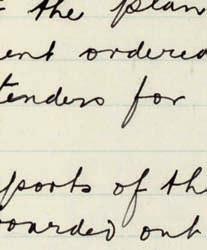 the plan
ent ordered
tenders for
ports of the
oarded out